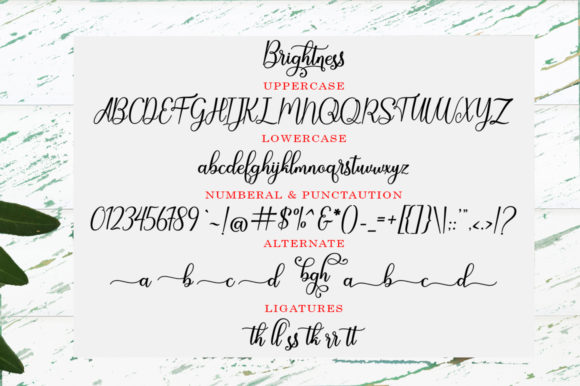 Brightness
UPPERCASE
ABCDEFGHIJKLMNOQRSTUVWXYZ
LOWERCASE
abcdefghijklmnoqrstuvwxyz
NUMBERAL & PUNCTAUTION
0123456789`~!@#$%^&*()-_=+[{]}\|;:'",<.>/?
ALTERNATE
a b c d bgh a b c d
LIGATURES
th ll ss tk rr tt